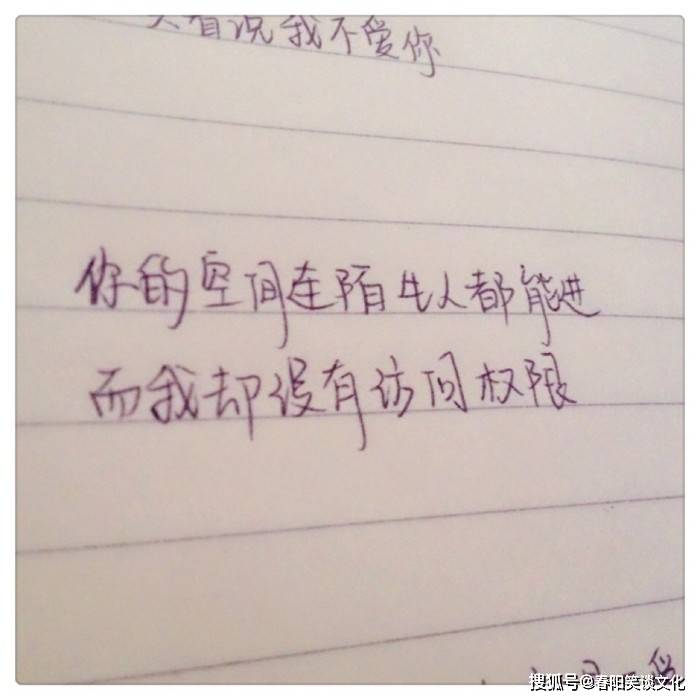 有说我不爱你
你的空间连陌生人都能进
而我却没有访问权限
搜狐号@春阳笑谈文化